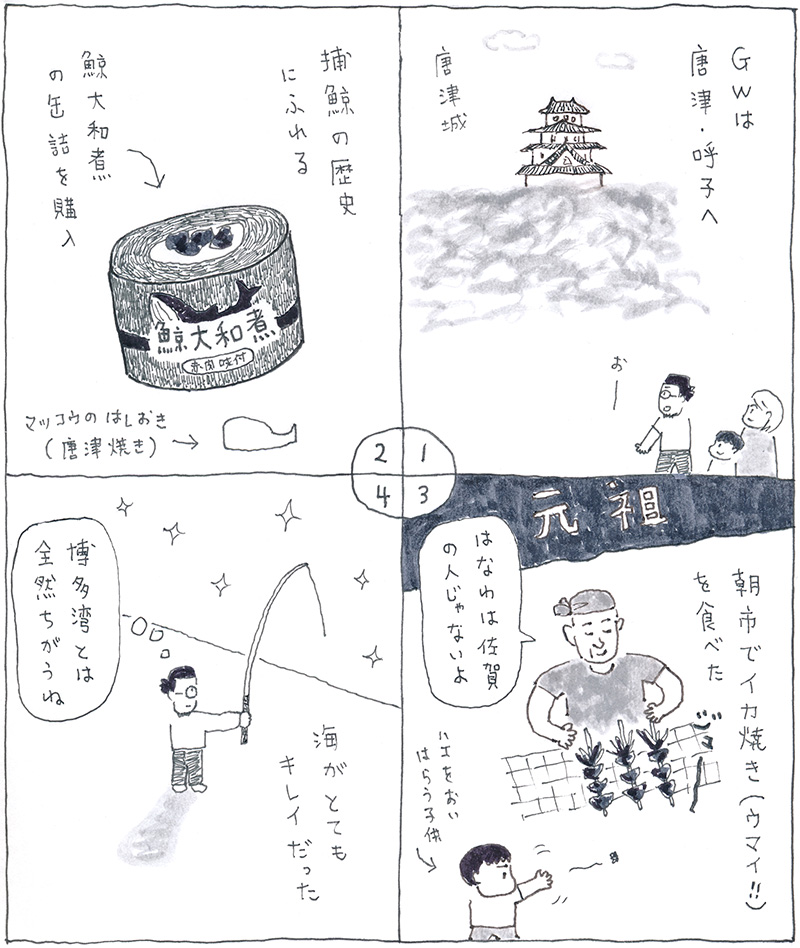 GWは
唐津・呼子へ
唐津城
おー
1
捕鯨の歴史
にふれる
鯨大和煮
の缶詰を購入
鯨大和煮
赤肉味付
マッコウのはしおき
(唐津焼き)
2
元祖
朝市でイカ焼き(ウマイ!!)
を食べた
はなわは佐賀
の人じゃないよ
ハエをおい
はらう子供
3
博多湾とは
全然ちがうね
海がとても
キレイだった
4